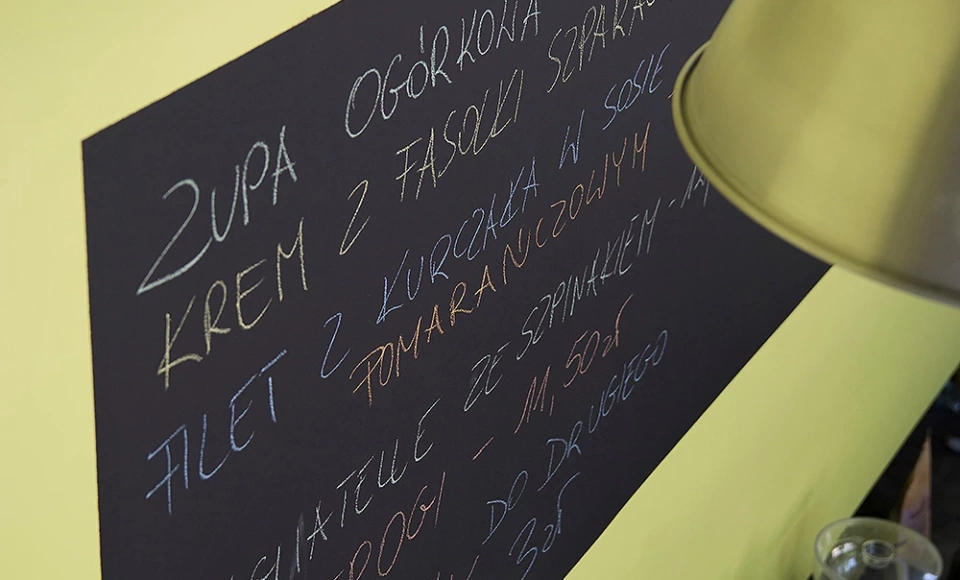 ZUPA OGÓRKOWA
KREM Z FASOLKI
FILET Z KURCZAKA W SOSIE
POMARAŃCZOWYM
ZE SZPINAKIEM -
- 11,50zł
DO DRUGIEGO
3zł